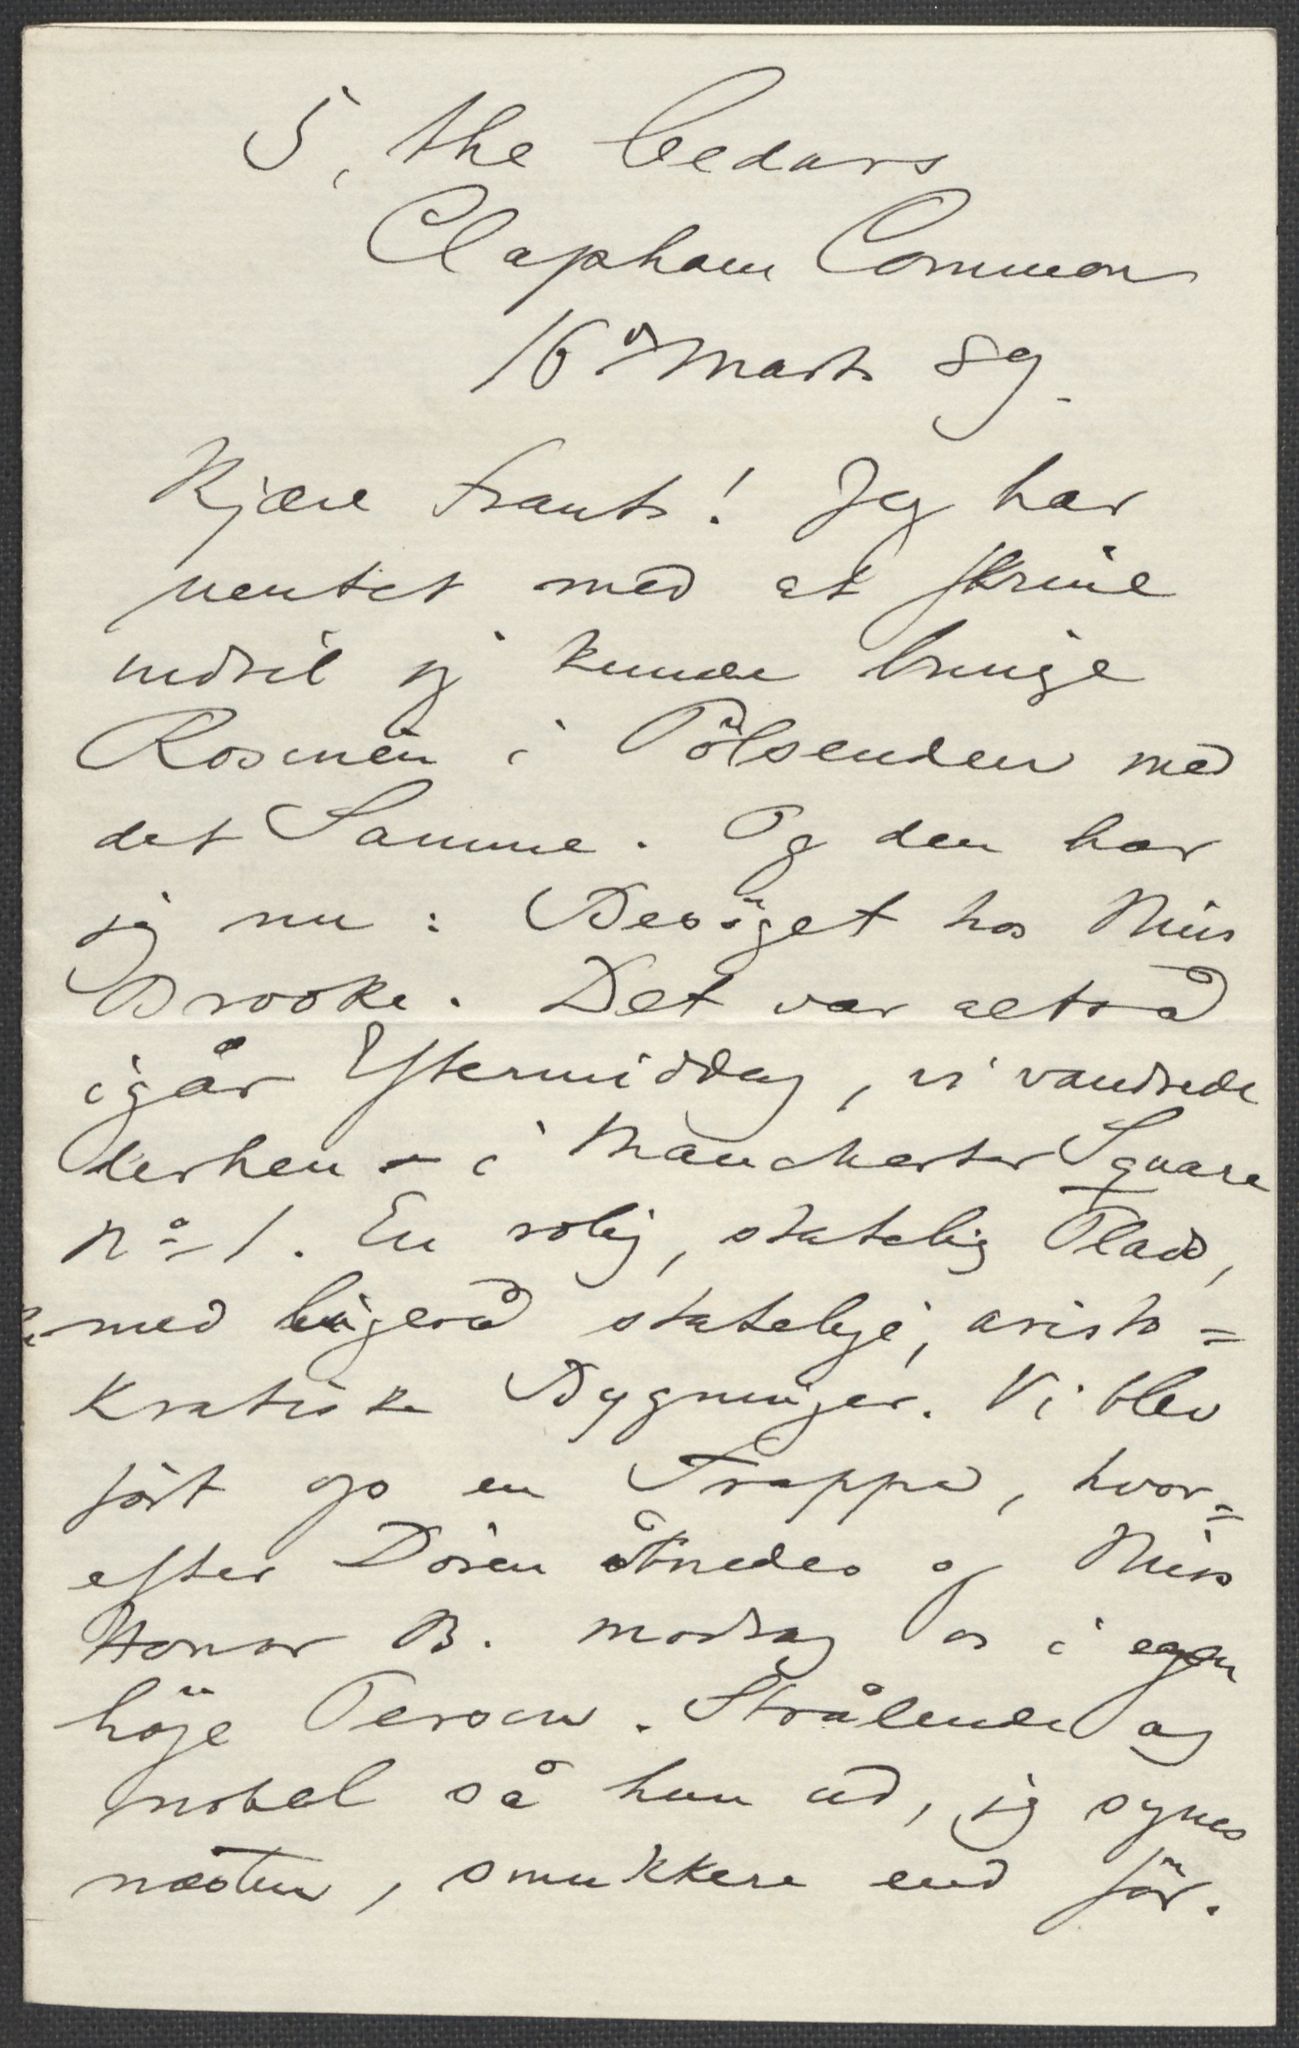 5, the Cedars
Clapham Common
16d Marts 89.
Kjære Frants! Jeg har
ventet med at skrive
indtil jeg kunde bringe
Rosinen i Pölsenden med
det Samme. Og den har
jeg nu: Besöget hos Miss
Brooke. Det var altså
igår Eftermiddag, vi vandrede
derhen – i Manchester Square
No 1. En rolig, statelig Plads,
med ligeså statelige, aristo=
kratiske Bygninger. Vi blev
fört op en Trappe, hvor=
efter Dören åbnedes og Miss
Honor B. modtog os i egen
höje Person. Strålende og
nobel så hun ud, jeg synes
næsten, smukkere end för.